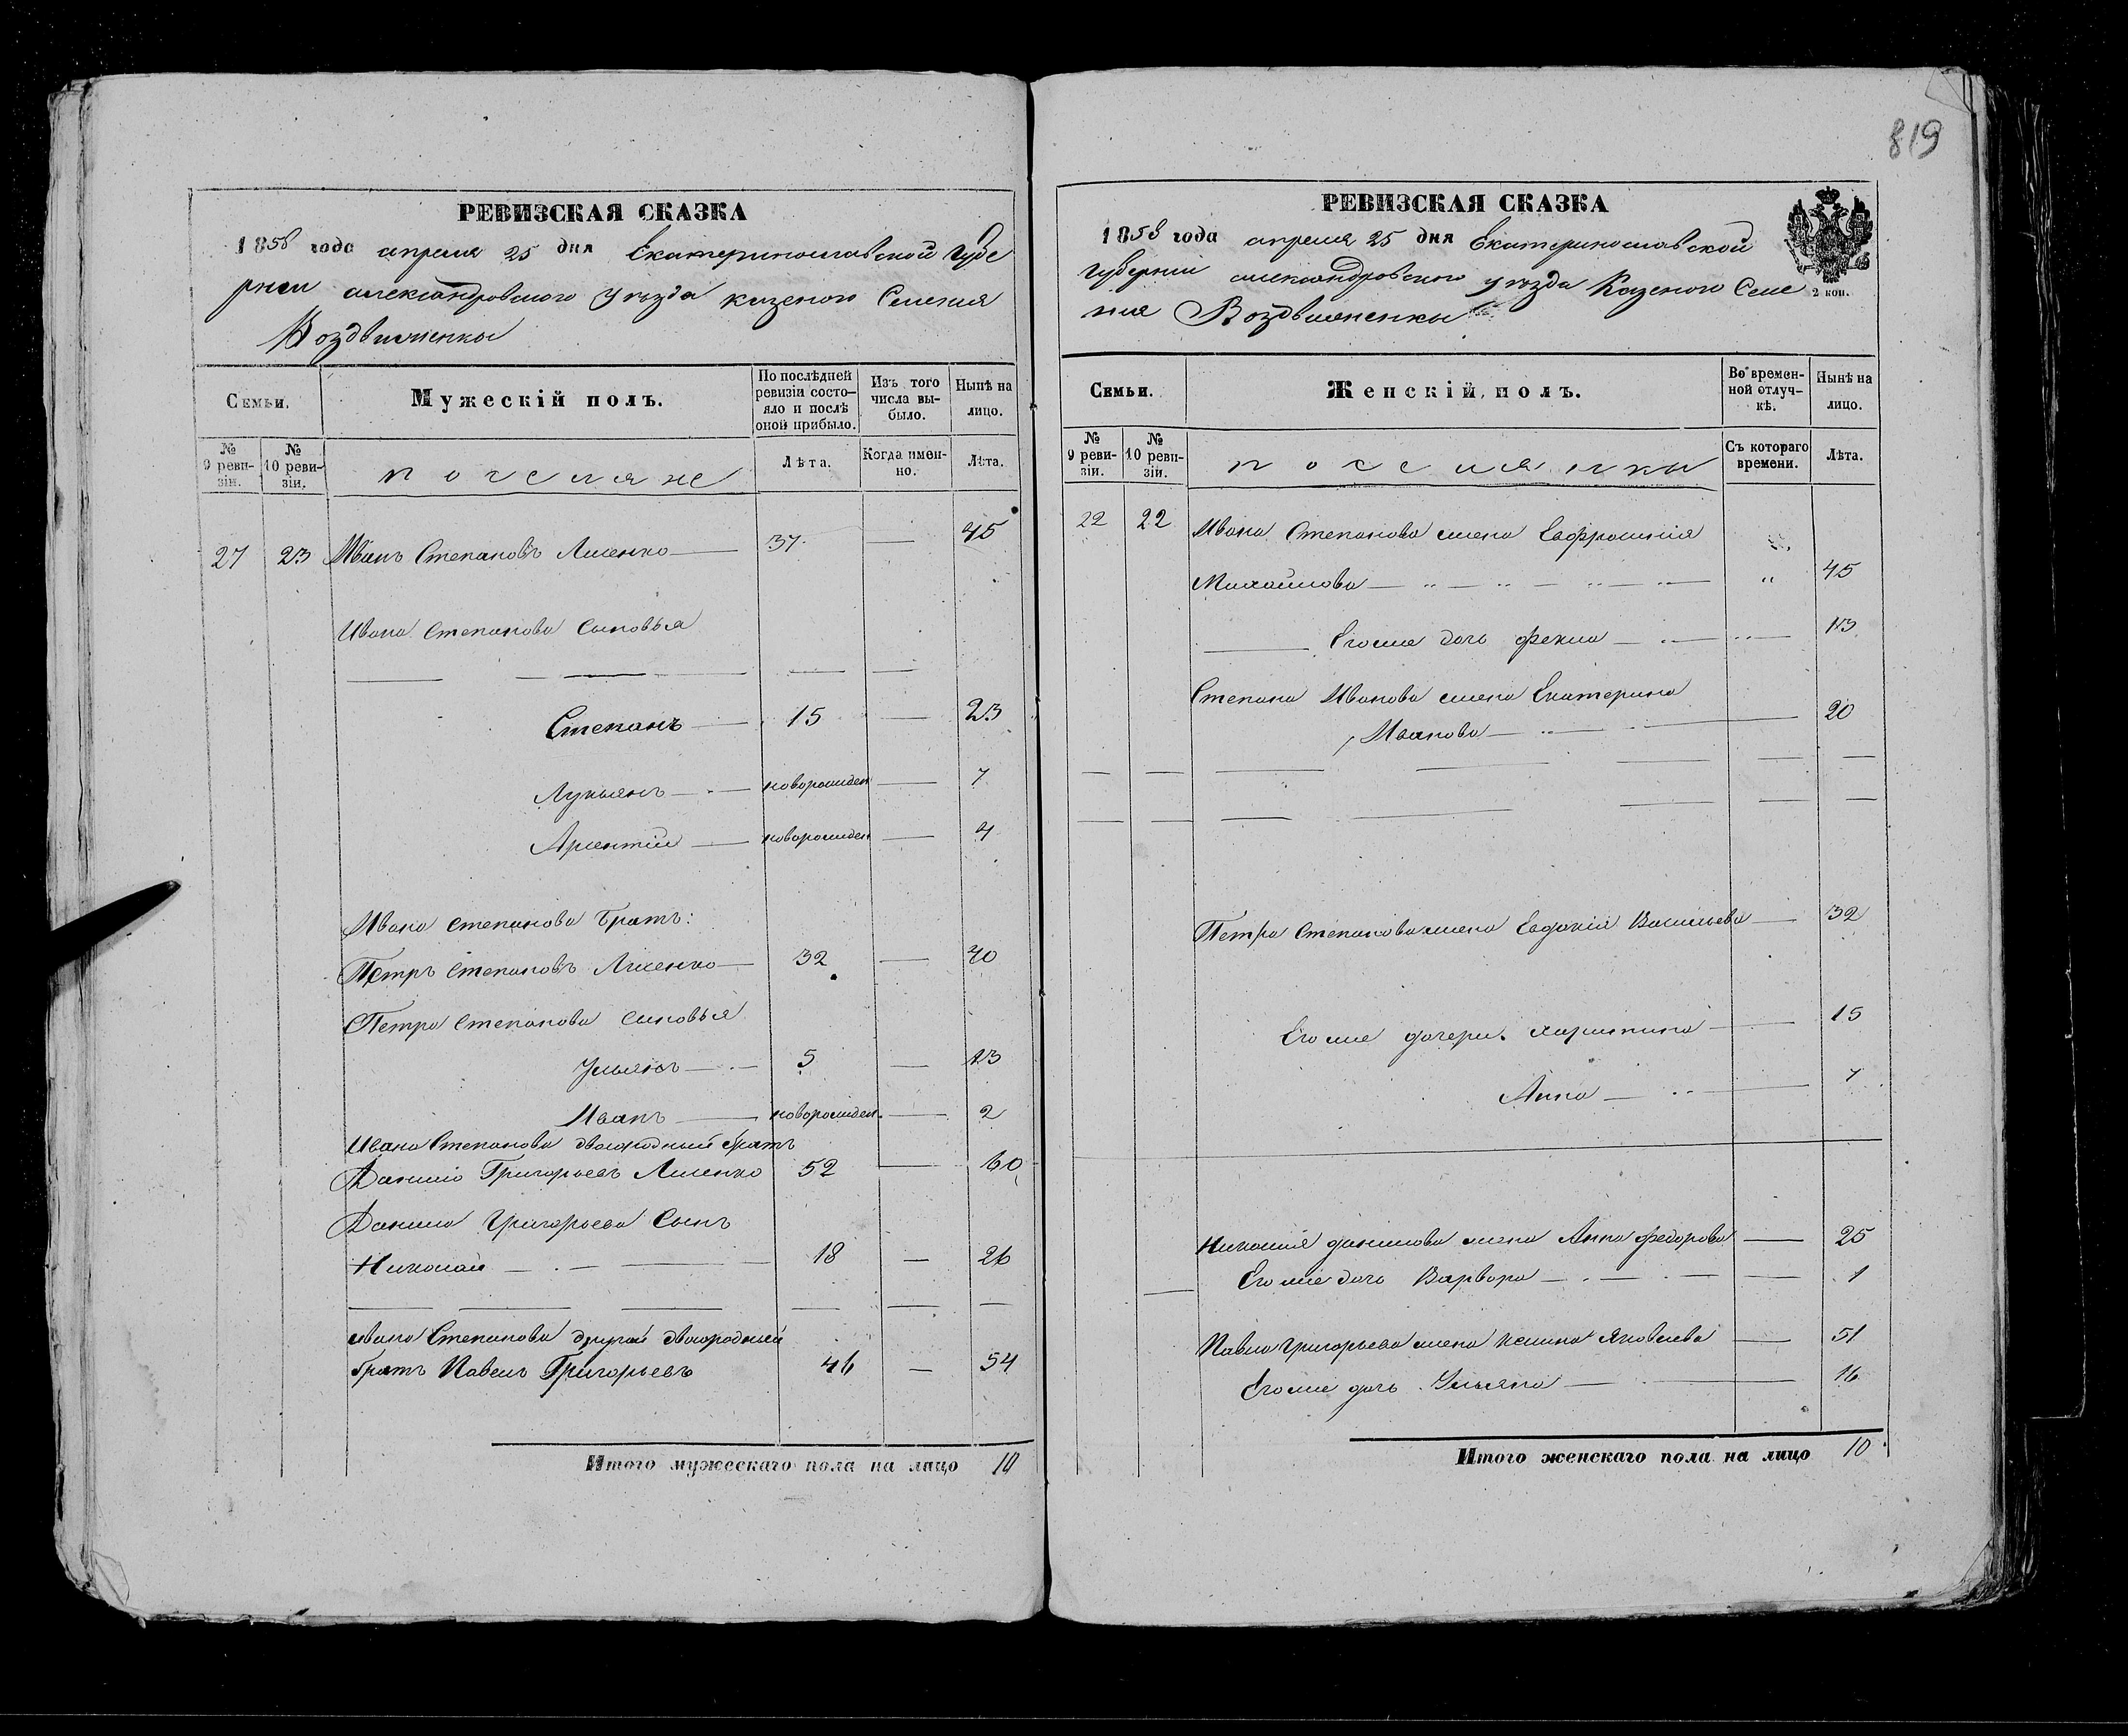 819
РЕВИЗСКАЯ СКАЗКА
1858 года апреля 25 дня Екатеринославской губе
рнии александровского уезда казеного Селения
Воздвиженки
Семьи.
Мужескій полъ.
По послѣдней ревизіи состо-яло и послѣ оной прибыло.
Изъ того числа вы-было.
Нынѣ на лицо.
№ 9 реви-зіи.
№ 10 реви-зіи.
поселяне
Лѣта.
Когда имен-но.
Лѣта.
27 23 Иванъ Степановъ Лисенко 37 — 45
Ивана Степанова Сыновья
Степанъ 15 — 23
Лукьянъ новорожден — 7
Арлентій новорожден — 4
Ивана Степанова Братъ:
Петръ Степановъ Лисенко 32 — 40
Петра Степанова Сыновья
Ульянъ 5 — 13
Иванъ новорожден. — 2
Ивана Степанова двоюродный братъ
Данило Григорьевъ Лисенко 52 — 60
Данила Григорьева Сынъ
Николай 18 — 26
ивана Степанова другой двоюродный
братъ Павелъ Григорьевъ 46 — 54
Итого мужескаго пола на лицо 10
РЕВИЗСКАЯ СКАЗКА
1858 года апреля 25 дня Екатеринославской
губерніи александровского уезда Казеного Селе
ния Воздвиженки
2 коп.
Семьи.
Женскій полъ.
Во времен-ной отлуч-кѣ.
Нынѣ на лицо.
№ 9 реви-зіи.
№ 10 реви-зіи.
поселянки
Съ котораго времени.
Лѣта.
22 22 Ивана Степанова жена Евфросинія
Михайлова 45
Его же дочь Фекла 13
Степана Иванова жена Екатерина
Иванова 20
Петра Степанова жена Евдокія Васильева — 32
Его же дочери. Харитина — 15
Анна 7
Николая данилова жена Анна федорова — 25
Его же дочь Варвара — 1
Павла Григорьева жена Яковлева — 51
Его же дочь Ульяна 16
Итого женскаго пола на лицо 10